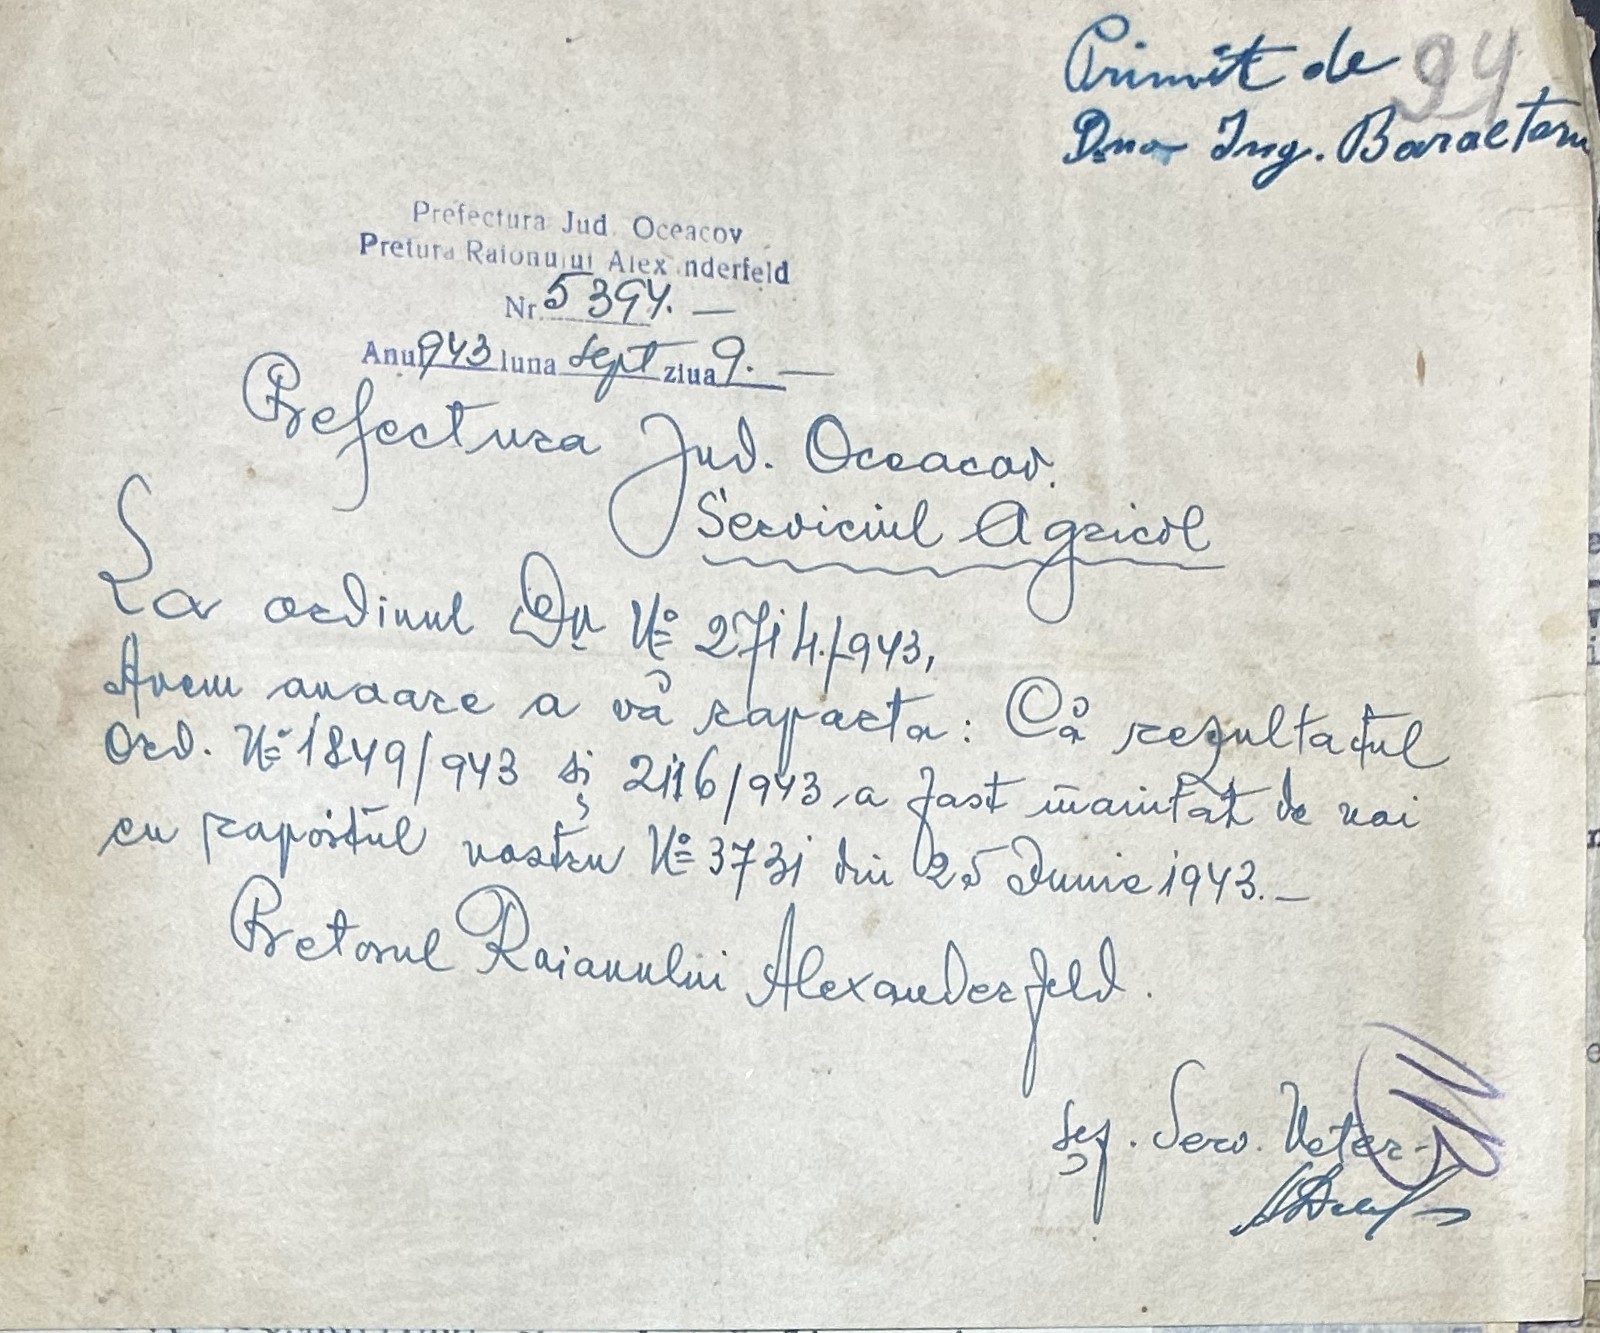 94
Primit de
Dna Ing.
Prefectura Jud. Oceacov
Pretura Raionului Alex nderfeld
Nr. 5394. —
Anul 943 luna Sept ziua 9. —
Prefectura Jud. Oceacov.
Serviciul Agricol
La ordinul Dv No 2714/943,
Avem onoare a vă raporta: Că rezultatul
Ord. No 1849/943 și 2116/943, a fost înaintat de noi
cu raportul nostru No 3731 din 25 Iunie 1943. —
Pretorul Raionului Alexanderfeld.
Șef. Serv. Veter-